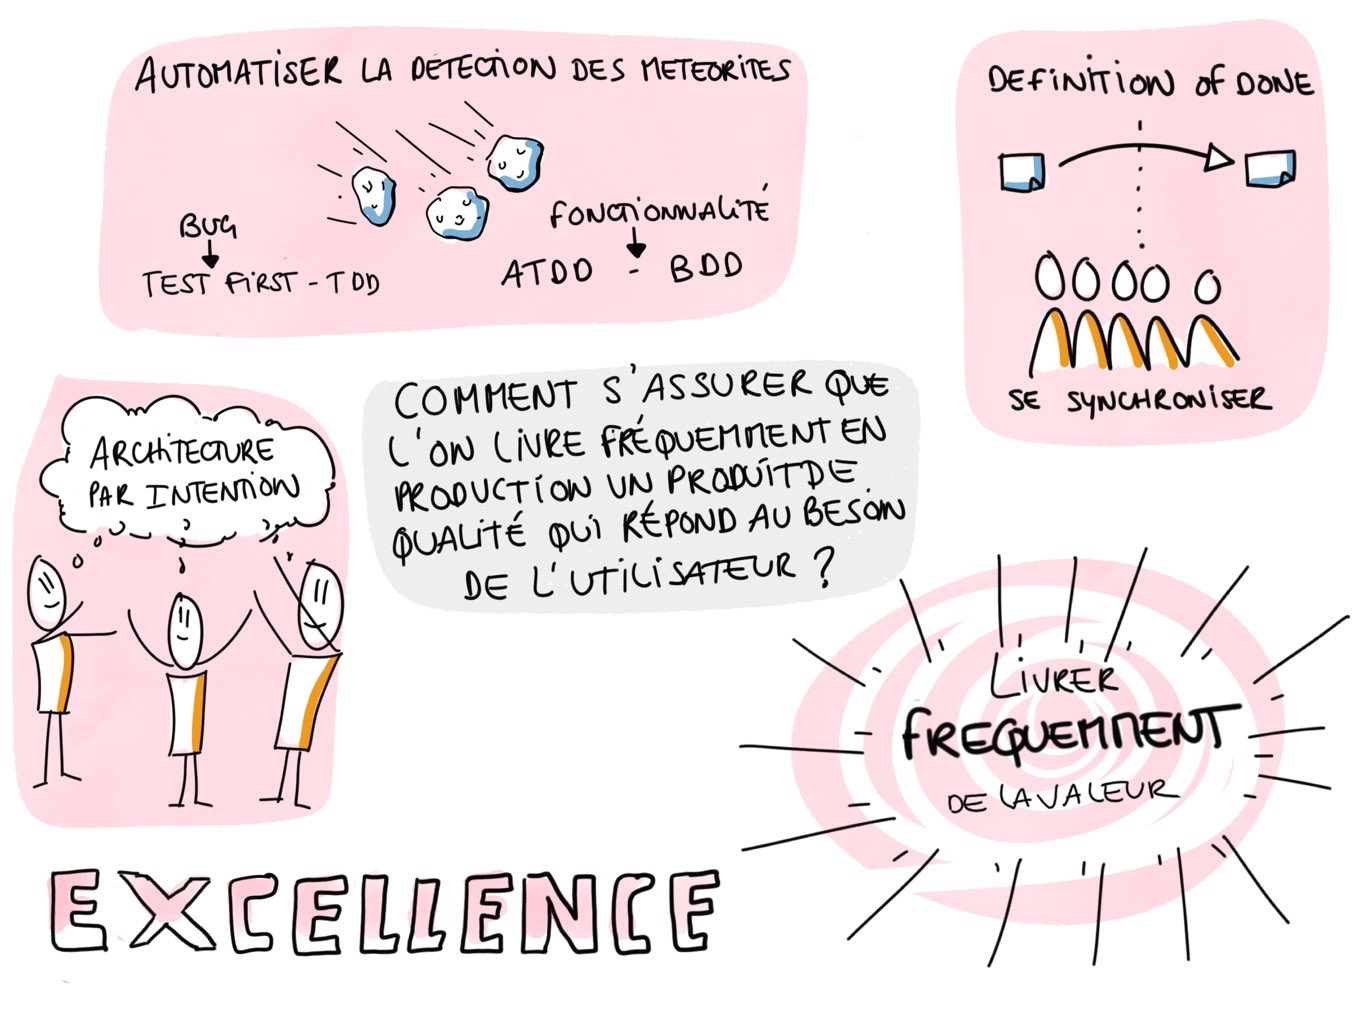 AUTOMATISER LA DETECTION DES METEORITES
BUG
TEST FIRST - TDD
FONCTIONNALITÉ
ATDD - BDD
DEFINITION OF DONE
SE SYNCHRONISER
ARCHITECTURE
PAR INTENTION
COMMENT S'ASSURER QUE
L'ON LIVRE FRÉQUEMMENT EN
PRODUCTION UN PRODUIT DE
QUALITÉ QUI RÉPOND AU BESOIN
DE L'UTILISATEUR ?
LIVRER
FREQUEMMENT
DE LA VALEUR
EXCELLENCE